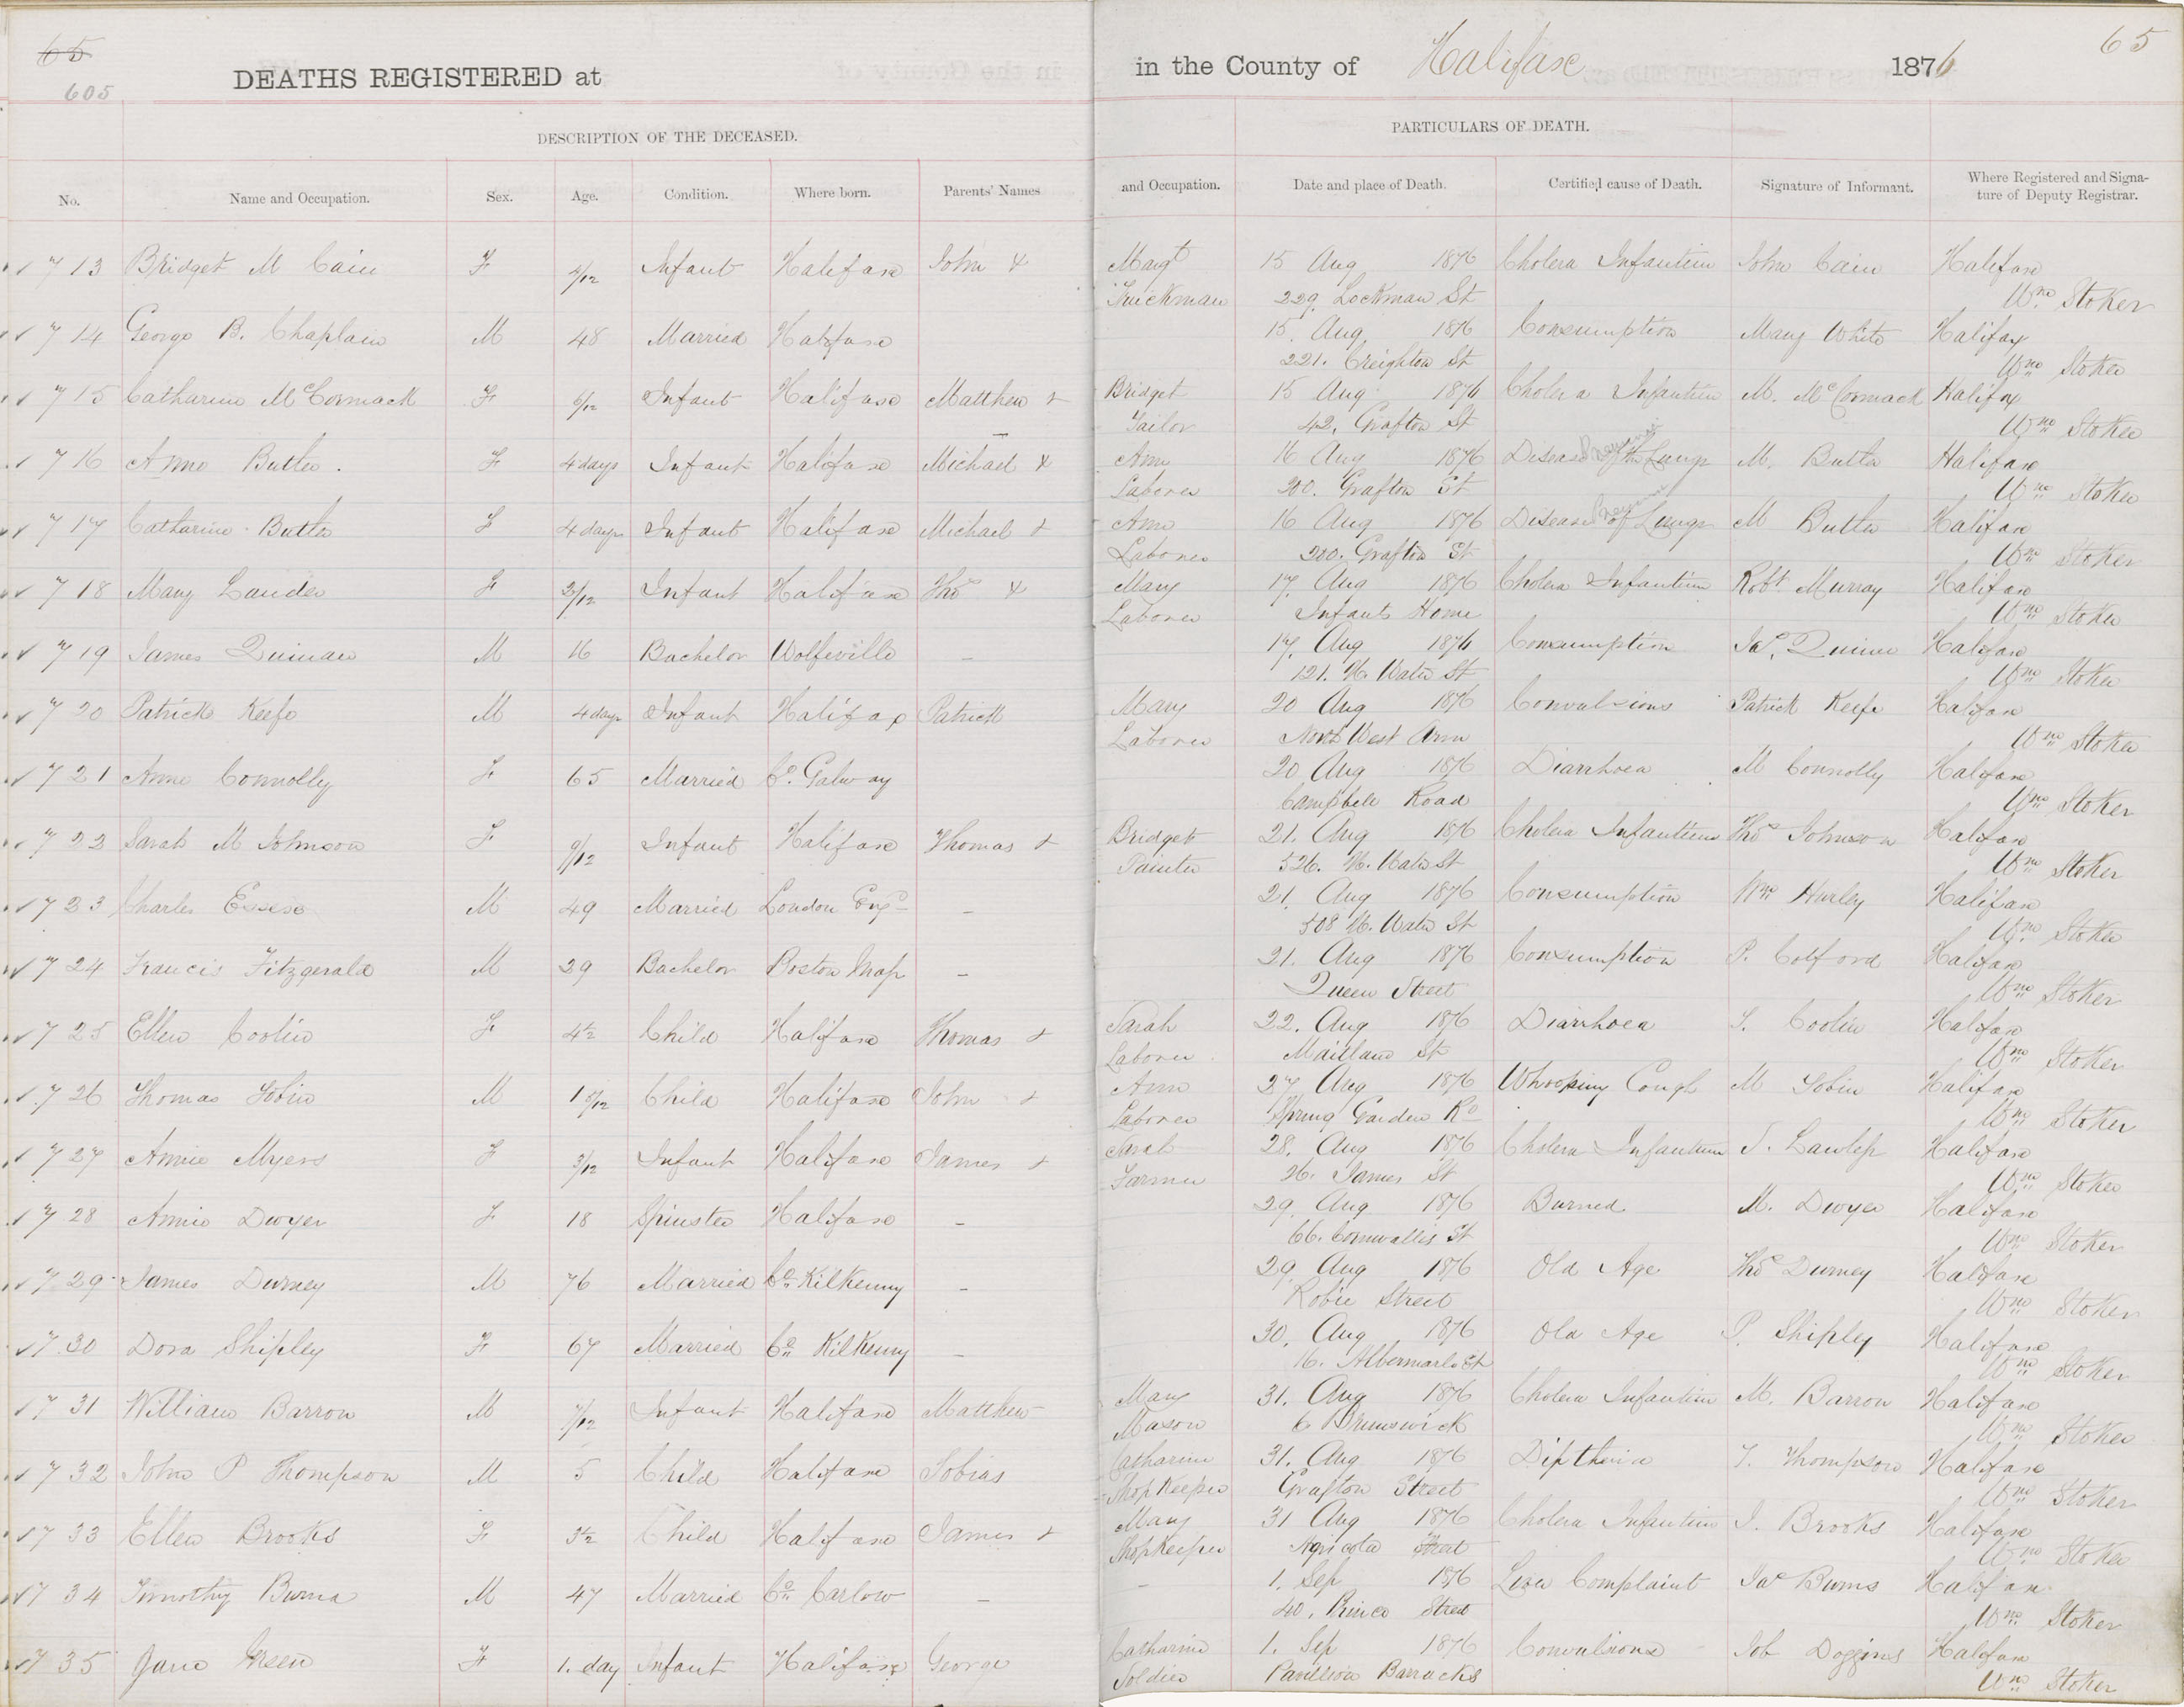 65
605
DEATHS REGISTERED at
in the County of Halifax 1876
65
DESCRIPTION OF THE DECEASED.
PARTICULARS OF DEATH.
No. Name and Occupation. Sex. Age. Condition. Where born. Parents' Names and Occupation. Date and place of Death. Certified cause of Death. Signature of Informant. Where Registered and Signature of Deputy Registrar.
713 Bridget M Cain F 4/12 Infant Halifax John & Margt 15 Aug 1876 Cholera Infantum John Cain Halifax
Truckman 229. Lockman St Wm Stoker
714 George B. Chaplain M 48 Married Halifax 15. Aug 1876 Consumption Mary White Halifax
221. Creighton St Wm Stoker
715 Catharine McCormack F 6/12 Infant Halifax Matthew & Bridget 15 Aug 1876 Cholera Infantum M. McCormack Halifax
Tailor 42. Grafton St Wm Stoker
716 Anne Butler. F 4 days Infant Halifax Michael & Ann 16 Aug 1876 Disease of the Lungs M. Butler Halifax
Laborer 200. Grafton St Wm Stoker
717 Catharine Butler F 4 days Infant Halifax Michael & Ann 16 Aug 1876 Disease of Lungs M Butler Halifax
Laborer 200. Grafton St Wm Stoker
718 Mary Lauder F 2/12 Infant Halifax Thos & Mary 17. Aug 1876 Cholera Infantum Robt Murray Halifax
Laborer Infants Home Wm Stoker
719 James Quinan M 16 Bachelor Wolfeville – 17. Aug 1876 Consumption Jas. Halifax
121. N. Water St Wm Stoker
720 Patrick Keefe M 4 days Infant Halifax Patrick Mary 20 Aug 1876 Convulsions Patrick Keefe Halifax
Laborer North West Arm Wm Stoker
721 Anne Connolly F 65 Married Co. Galway 20 Aug 1876 Diarrhoea M Connolly Halifax
Campbell Road Wm Stoker
722 Sarah M Johnson F 9/12 Infant Halifax Thomas & Bridget 21. Aug 1876 Cholera Infantum Thos Johnson Halifax
Painter 526. N. Water St Wm Stoker
723 Charles Essex M 49 Married London Engd – 21. Aug 1876 Consumption Wm Hurley Halifax
508 N. Water St Wm Stoker
724 Francis Fitzgerald M 29 Bachelor Boston Mass – 21. Aug 1876 Consumption P. Colford Halifax
Queen Street Wm Stoker
725 Ellen Coolin F 4½ Child Halifax Thomas & Sarah 22. Aug 1876 Diarrhoea T. Coolin Halifax
Laborer Maitland St Wm Stoker
726 Thomas Tobin M Child Halifax John & Ann 27. Aug 1876 Whooping Cough M Tobin Halifax
Laborer Spring Garden Rd Wm Stoker
727 Annie Myers F 3/12 Infant Halifax James & Sarah 28. Aug 1876 Cholera Infantum S. Halifax
Farmer 26. James St Wm Stoker
728 Annie Dwyer F 18 Spinster Halifax – 29. Aug 1876 Burned. M. Dwyer Halifax
66. Cornwallis St Wm Stoker
729 James Durney M 76 Married Co. Kilkenny – 29. Aug 1876 Old Age Thos Durney Halifax
Robie Street Wm Stoker
730 Dora Shipley F 67 Married Co. Kilkenny – 30. Aug 1876 Old Age P. Shipley Halifax
16. Albermarle St Wm Stoker
731 William Barron M 7/12 Infant Halifax Matthew Mary 31. Aug 1876 Cholera Infantum M. Barron Halifax
Mason 6 Brunswick Wm Stoker
732 John P Thompson M 5 Child Halifax Tobias Catharine 31. Aug 1876 Diptheria T. Thompson Halifax
Shop Keeper Grafton Street Wm Stoker
733 Ellen Brooks F 3½ Child Halifax James & Mary 31 Aug 1876 Cholera Infantum J. Brooks Halifax
Shopkeeper Agricola Street Wm Stoker
734 Timothy Burns M 47 Married Co. Carlow – – 1. Sep 1876 Liver Complaint Jas Burns Halifax
40. Prince Street Wm Stoker
735 Jane Green F 1. day Infant Halifax George Catharine 1. Sep 1876 Convulsions Job Doggins Halifax
Soldier Pavillion Barracks Wm Stoker